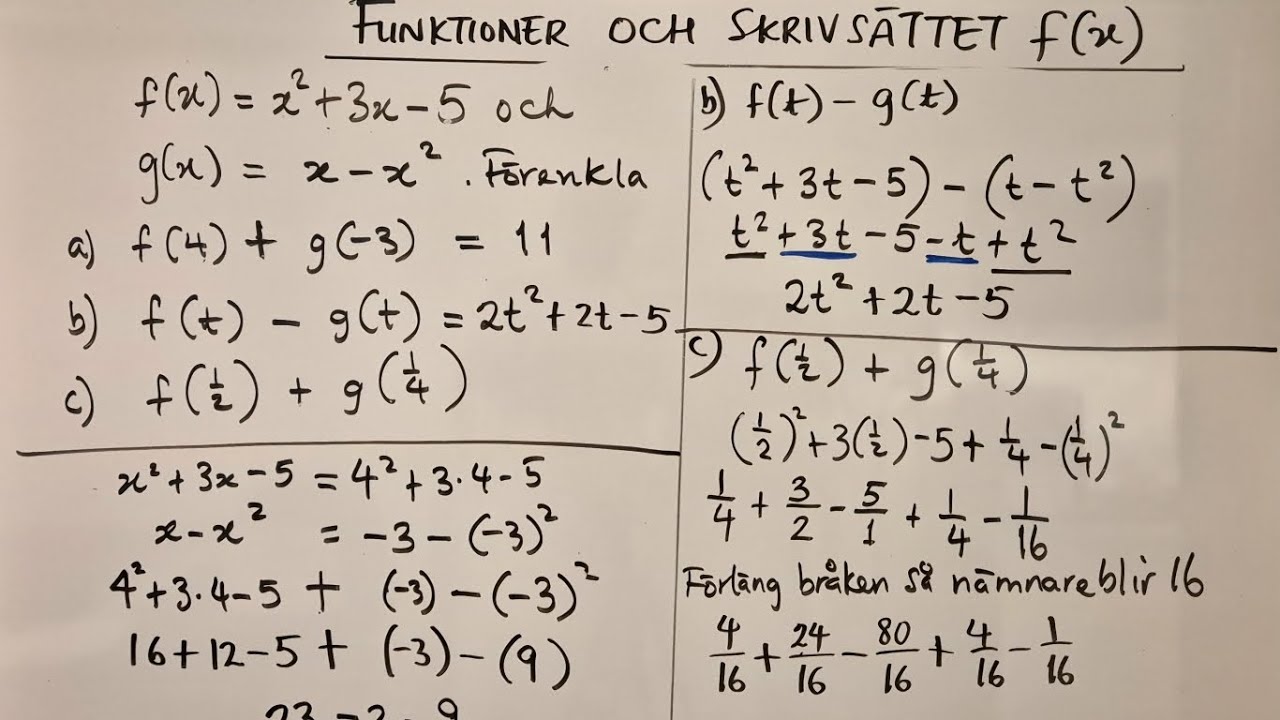 FUNKTIONER OCH SKRIVSÄTTET f(x)
f(x) = x² + 3x - 5 och
g(x) = x - x². Förenkla
a) f(4) + g(-3) = 11
b) f(t) - g(t) = 2t² + 2t - 5
c) f(1/2) + g(1/4)
x² + 3x - 5 = 4² + 3·4 - 5
x - x² = -3 - (-3)²
4² + 3·4 - 5 + (-3) - (-3)²
16 + 12 - 5 + (-3) - (9)
b) f(t) - g(t)
(t² + 3t - 5) - (t - t²)
t² + 3t - 5 - t + t²
2t² + 2t - 5
c) f(1/2) + g(1/4)
(1/2)² + 3(1/2) - 5 + 1/4 - (1/4)²
1/4 + 3/2 - 5/1 + 1/4 - 1/16
Förläng bråken så nämnare blir 16
4/16 + 24/16 - 80/16 + 4/16 - 1/16